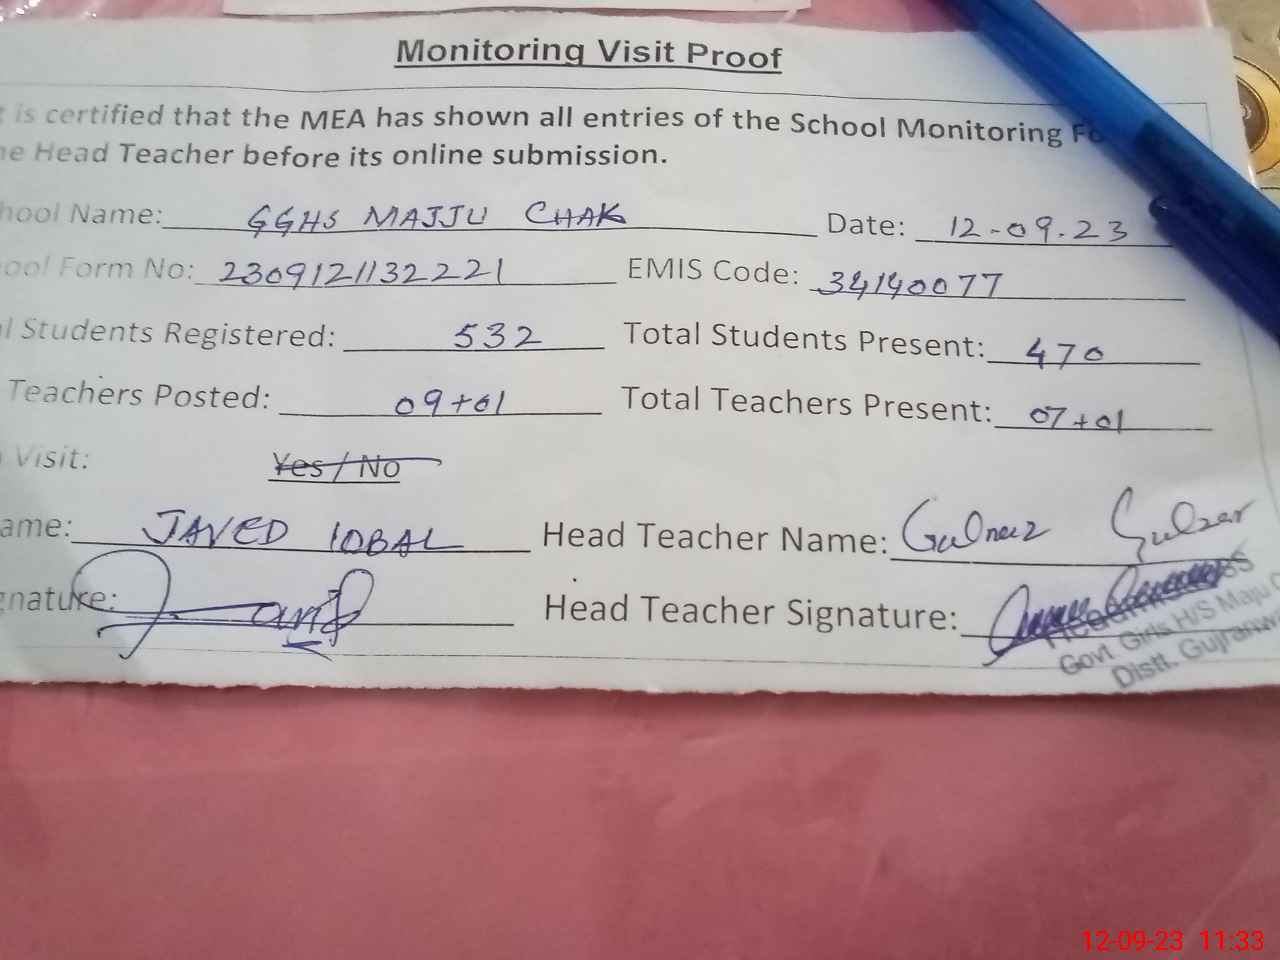 Monitoring Visit Proof
is certified that the MEA has shown all entries of the School Monitoring
Head Teacher before its online submission.
Name: GGHS MAJJU CHAK Date: 12-09-23
Form No: 2309121132221 EMIS Code: 34140077
Students Registered: 532 Total Students Present: 470
Teachers Posted: 09+01 Total Teachers Present: 07+01
Visit: Yes / No
JAVED IQBAL Head Teacher Name: Gulnaz Gulzar
Head Teacher Signature:
Govt Girls H/S Maju
Distt.
12-09-23 11:33